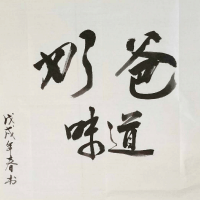 奶爸
味道
戊戌年春书